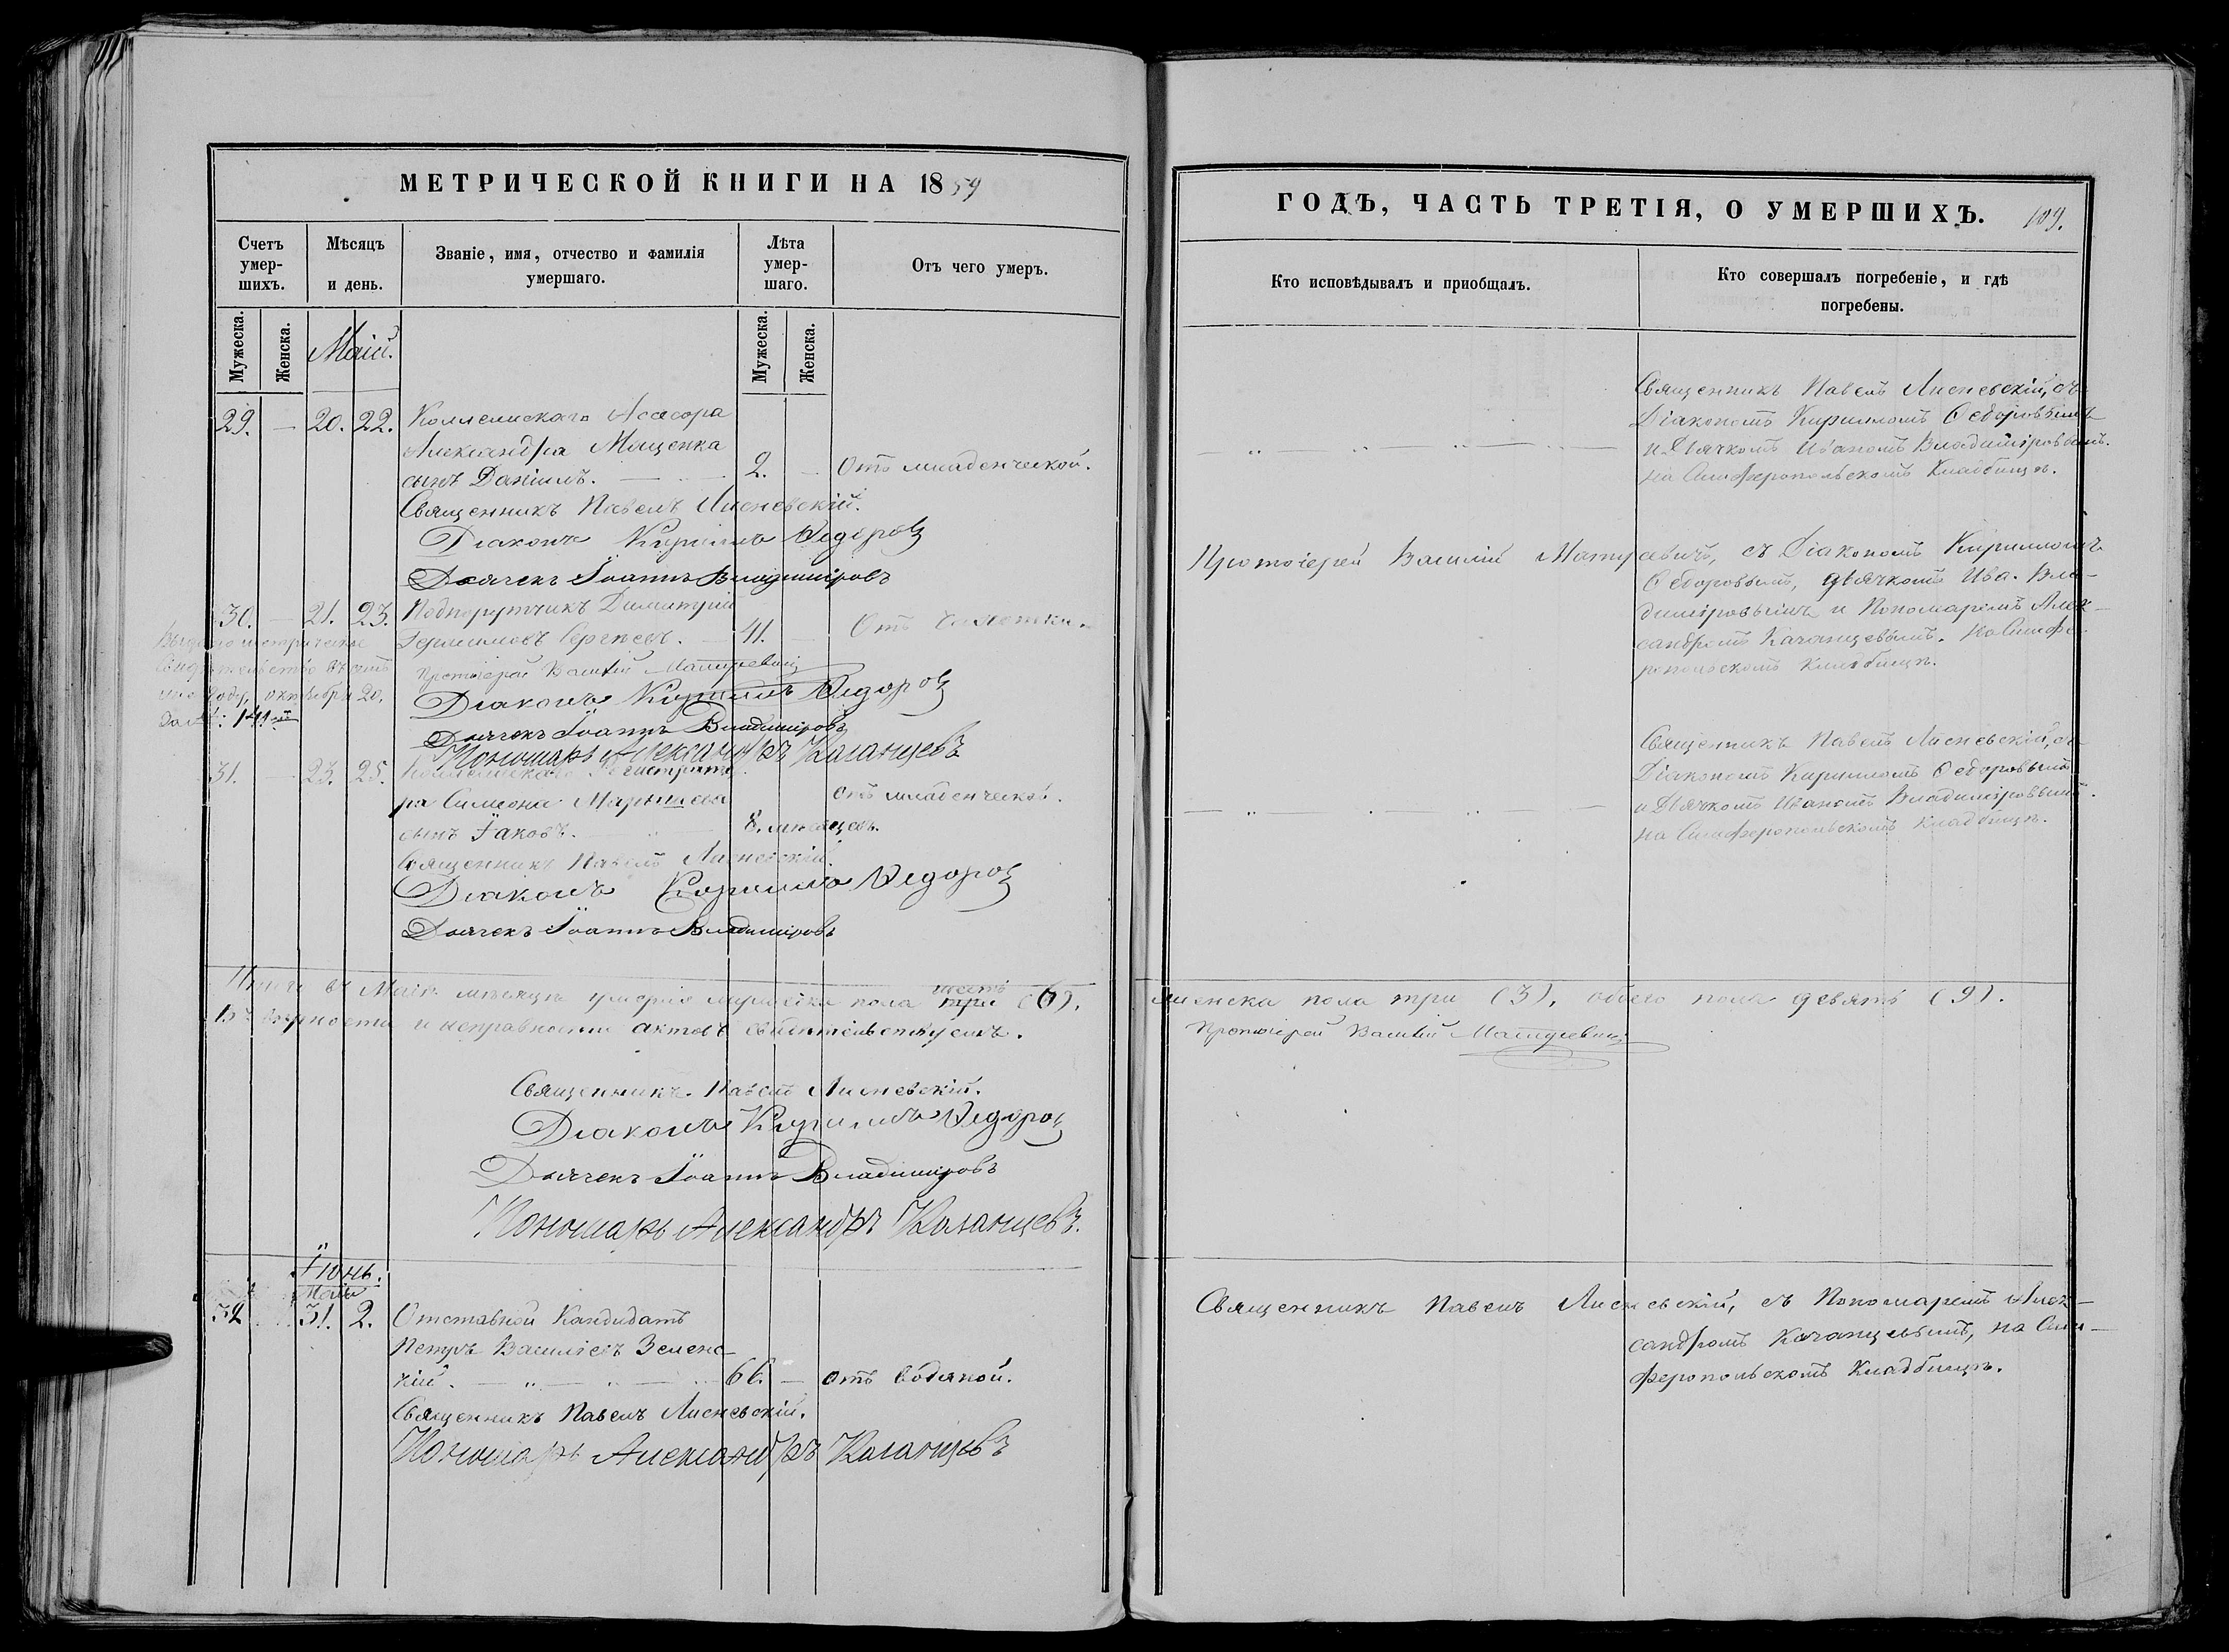 МЕТРИЧЕСКОЙ КНИГИ НА 1859
Счетъ умер-шихъ.
Мѣсяцъ и день.
Званіе, имя, отчество и фамилія умершаго.
Лѣта умер-шаго.
Отъ чего умеръ.
Мужеска.
Женска.
Маій.
Мужеска.
Женска.
29. — 20. 22. Коллежскаго Асасора
Александра Мащенка
сынъ Даніилъ. 2. — Отъ младенческой.
Священникъ Павелъ Лисневскій.
Діаконъ Кириллъ Ѳедоровъ
Дьячекъ Іоаннъ Владиміровъ
30. — 21. 23. Подпорутчикъ Димитрій
Сергѣевъ. — 41. — Отъ
Выдано метрическое
свидѣтельство въ семъ
году, октября 20,
за №: 141
Протоіерей Василій Матусевичъ
Діаконъ Кириллъ Ѳедоровъ
Дьячекъ Іоаннъ Владиміровъ
Пономарь Александръ Казанцевъ
31. — 23. 25. Коллежскаго Регистрато
ра Симеона Марышева отъ младенческой.
сынъ Іаковъ. 8. мѣсяцевъ.
Священникъ Павелъ Лисневскій.
Діаконъ Кириллъ Ѳедоровъ
Дьячекъ Іоаннъ Владиміровъ
Итого въ Маіѣ мѣсяцѣ умерло мужеска пола три шесть (6).
Въ вѣрности и исправности актовъ свидѣтельствуемъ.
Священникъ Павелъ Лисневскій.
Діаконъ Кириллъ Ѳедоровъ
Дьячекъ Іоаннъ Владиміровъ
Пономарь Александръ Казанцевъ.
Іюнь.
Маія
32 31. 2. Отставной Кандидатъ
Петръ Василіевъ Зеленс-
кій. 66. — отъ водяной.
Священникъ Павелъ Лисневскій.
Пономарь Александръ Казанцевъ
ГОДЪ, ЧАСТЬ ТРЕТІЯ, О УМЕРШИХЪ. 109.
Кто исповѣдывалъ и приобщалъ.
Кто совершалъ погребеніе, и гдѣ погребены.
Священникъ Павелъ Лисневскій, съ
Діакономъ Кирилломъ Ѳедоровымъ
и Дьячкомъ Иваномъ Владиміровымъ.
на Симферопольскомъ Кладбищѣ.
Протоіерей Василій Матусевичъ, съ Діакономъ Кирилломъ
Ѳедоровымъ, дьячкомъ Ива. Вла-
диміровымъ и Пономаремъ Алек-
сандромъ Казанцевымъ. На Симфе-
ропольскомъ Кладбищѣ.
Священникъ Павелъ Лисневскій, съ
Діакономъ Кирилломъ Ѳедоровымъ
и Дьячкомъ Иваномъ Владиміровымъ.
на Симферопольскомъ Кладбищѣ.
женска пола три (3), обоего пола девять (9).
Протоіерей Василій Матусевичъ
Священникъ Павелъ Лисневскій, съ Пономаремъ Алек-
сандромъ Казанцевымъ, на Сим-
феропольскомъ Кладбищѣ.